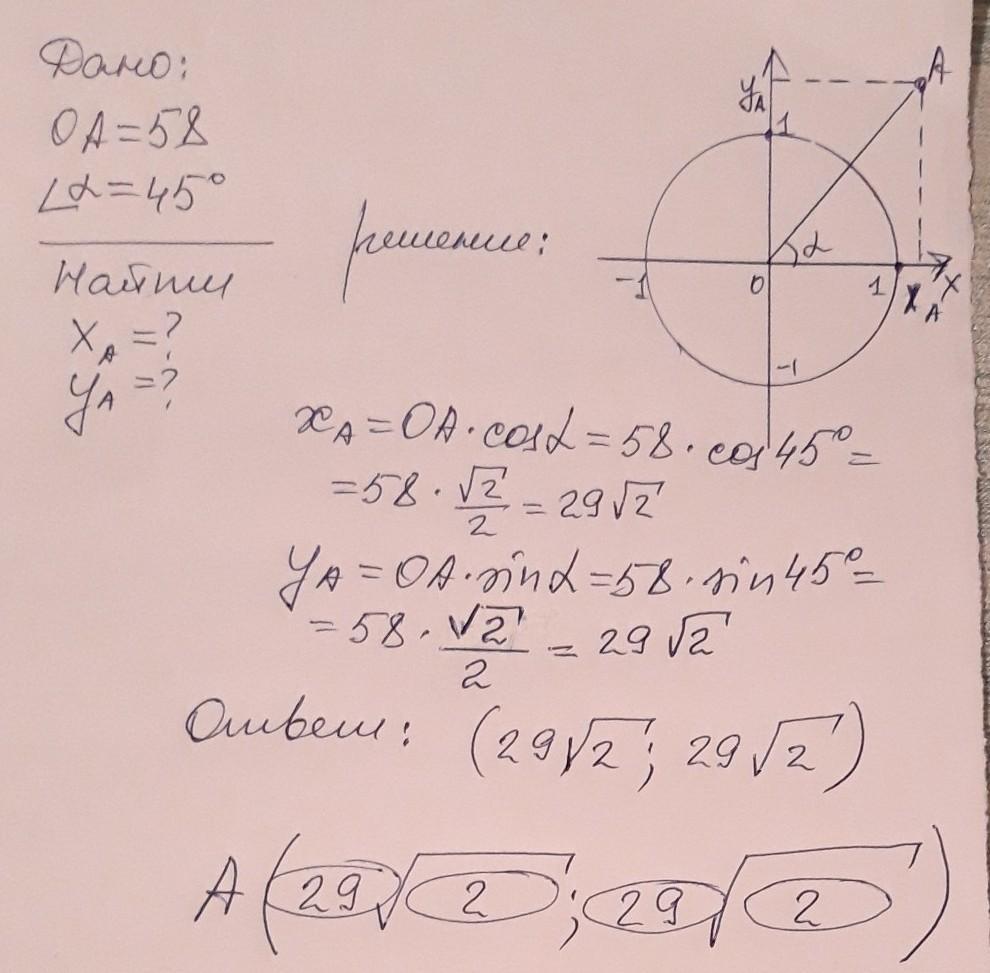 Дано:
OA=58
∠α=45°
Найти
x_A=?
y_A=?
решение:
y_A
A
1
α
-1
0
1
x_A
x
-1
x_A=OA·cosα=58·cos45°=
=58·√2/2=29√2
y_A=OA·sinα=58·sin45°=
=58·√2/2=29√2
Ответ: (29√2; 29√2)
A(29√2; 29√2)